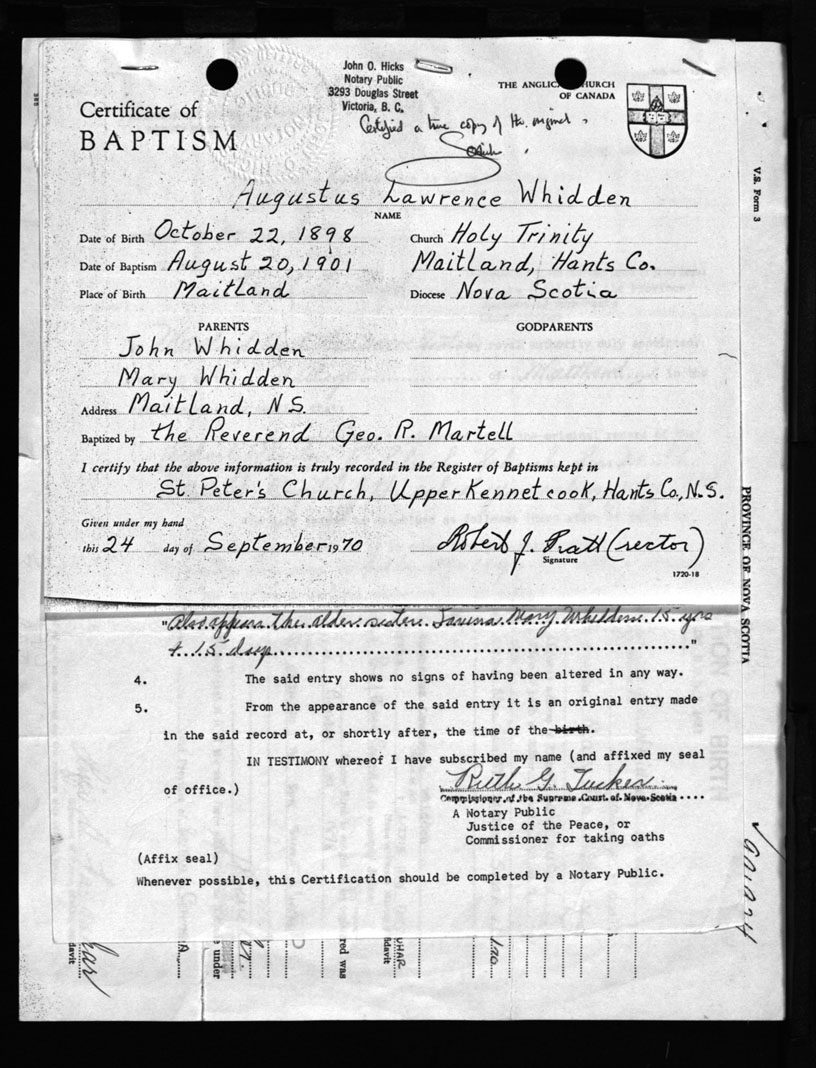 John O. Hicks
Notary Public
3293 Douglas Street
Victoria, B. C.
Certified a true copy of the original
THE ANGLICAN CHURCH
OF CANADA
Certificate of
BAPTISM
Augustus Lawrence Whidden
NAME
Date of Birth October 22, 1898
Church Holy Trinity
Date of Baptism August 20, 1901
Maitland, Hants Co.
Place of Birth Maitland
Diocese Nova Scotia
PARENTS
GODPARENTS
John Whidden
Mary Whidden
Address Maitland, N.S.
Baptized by the Reverend Geo. R. Martell
I certify that the above information is truly recorded in the Register of Baptisms kept in
St. Peter's Church, Upper Kennetcook, Hants Co., N.S.
Given under my hand
this 24 day of September 1970
Robert J. Pratt (rector)
Signature
1720-18
"Also appears the older sister Mary Whidden 15 yrs
+ 15 days"
4. The said entry shows no signs of having been altered in any way.
5. From the appearance of the said entry it is an original entry made
in the said record at, or shortly after, the time of the birth.
IN TESTIMONY whereof I have subscribed my name (and affixed my seal
of office.)
Ruth G. Tucker
Commissioner of the Supreme Court of Nova Scotia
A Notary Public
Justice of the Peace, or
Commissioner for taking oaths
(Affix seal)
Whenever possible, this Certification should be completed by a Notary Public.
V.S. Form 3
PROVINCE OF NOVA SCOTIA